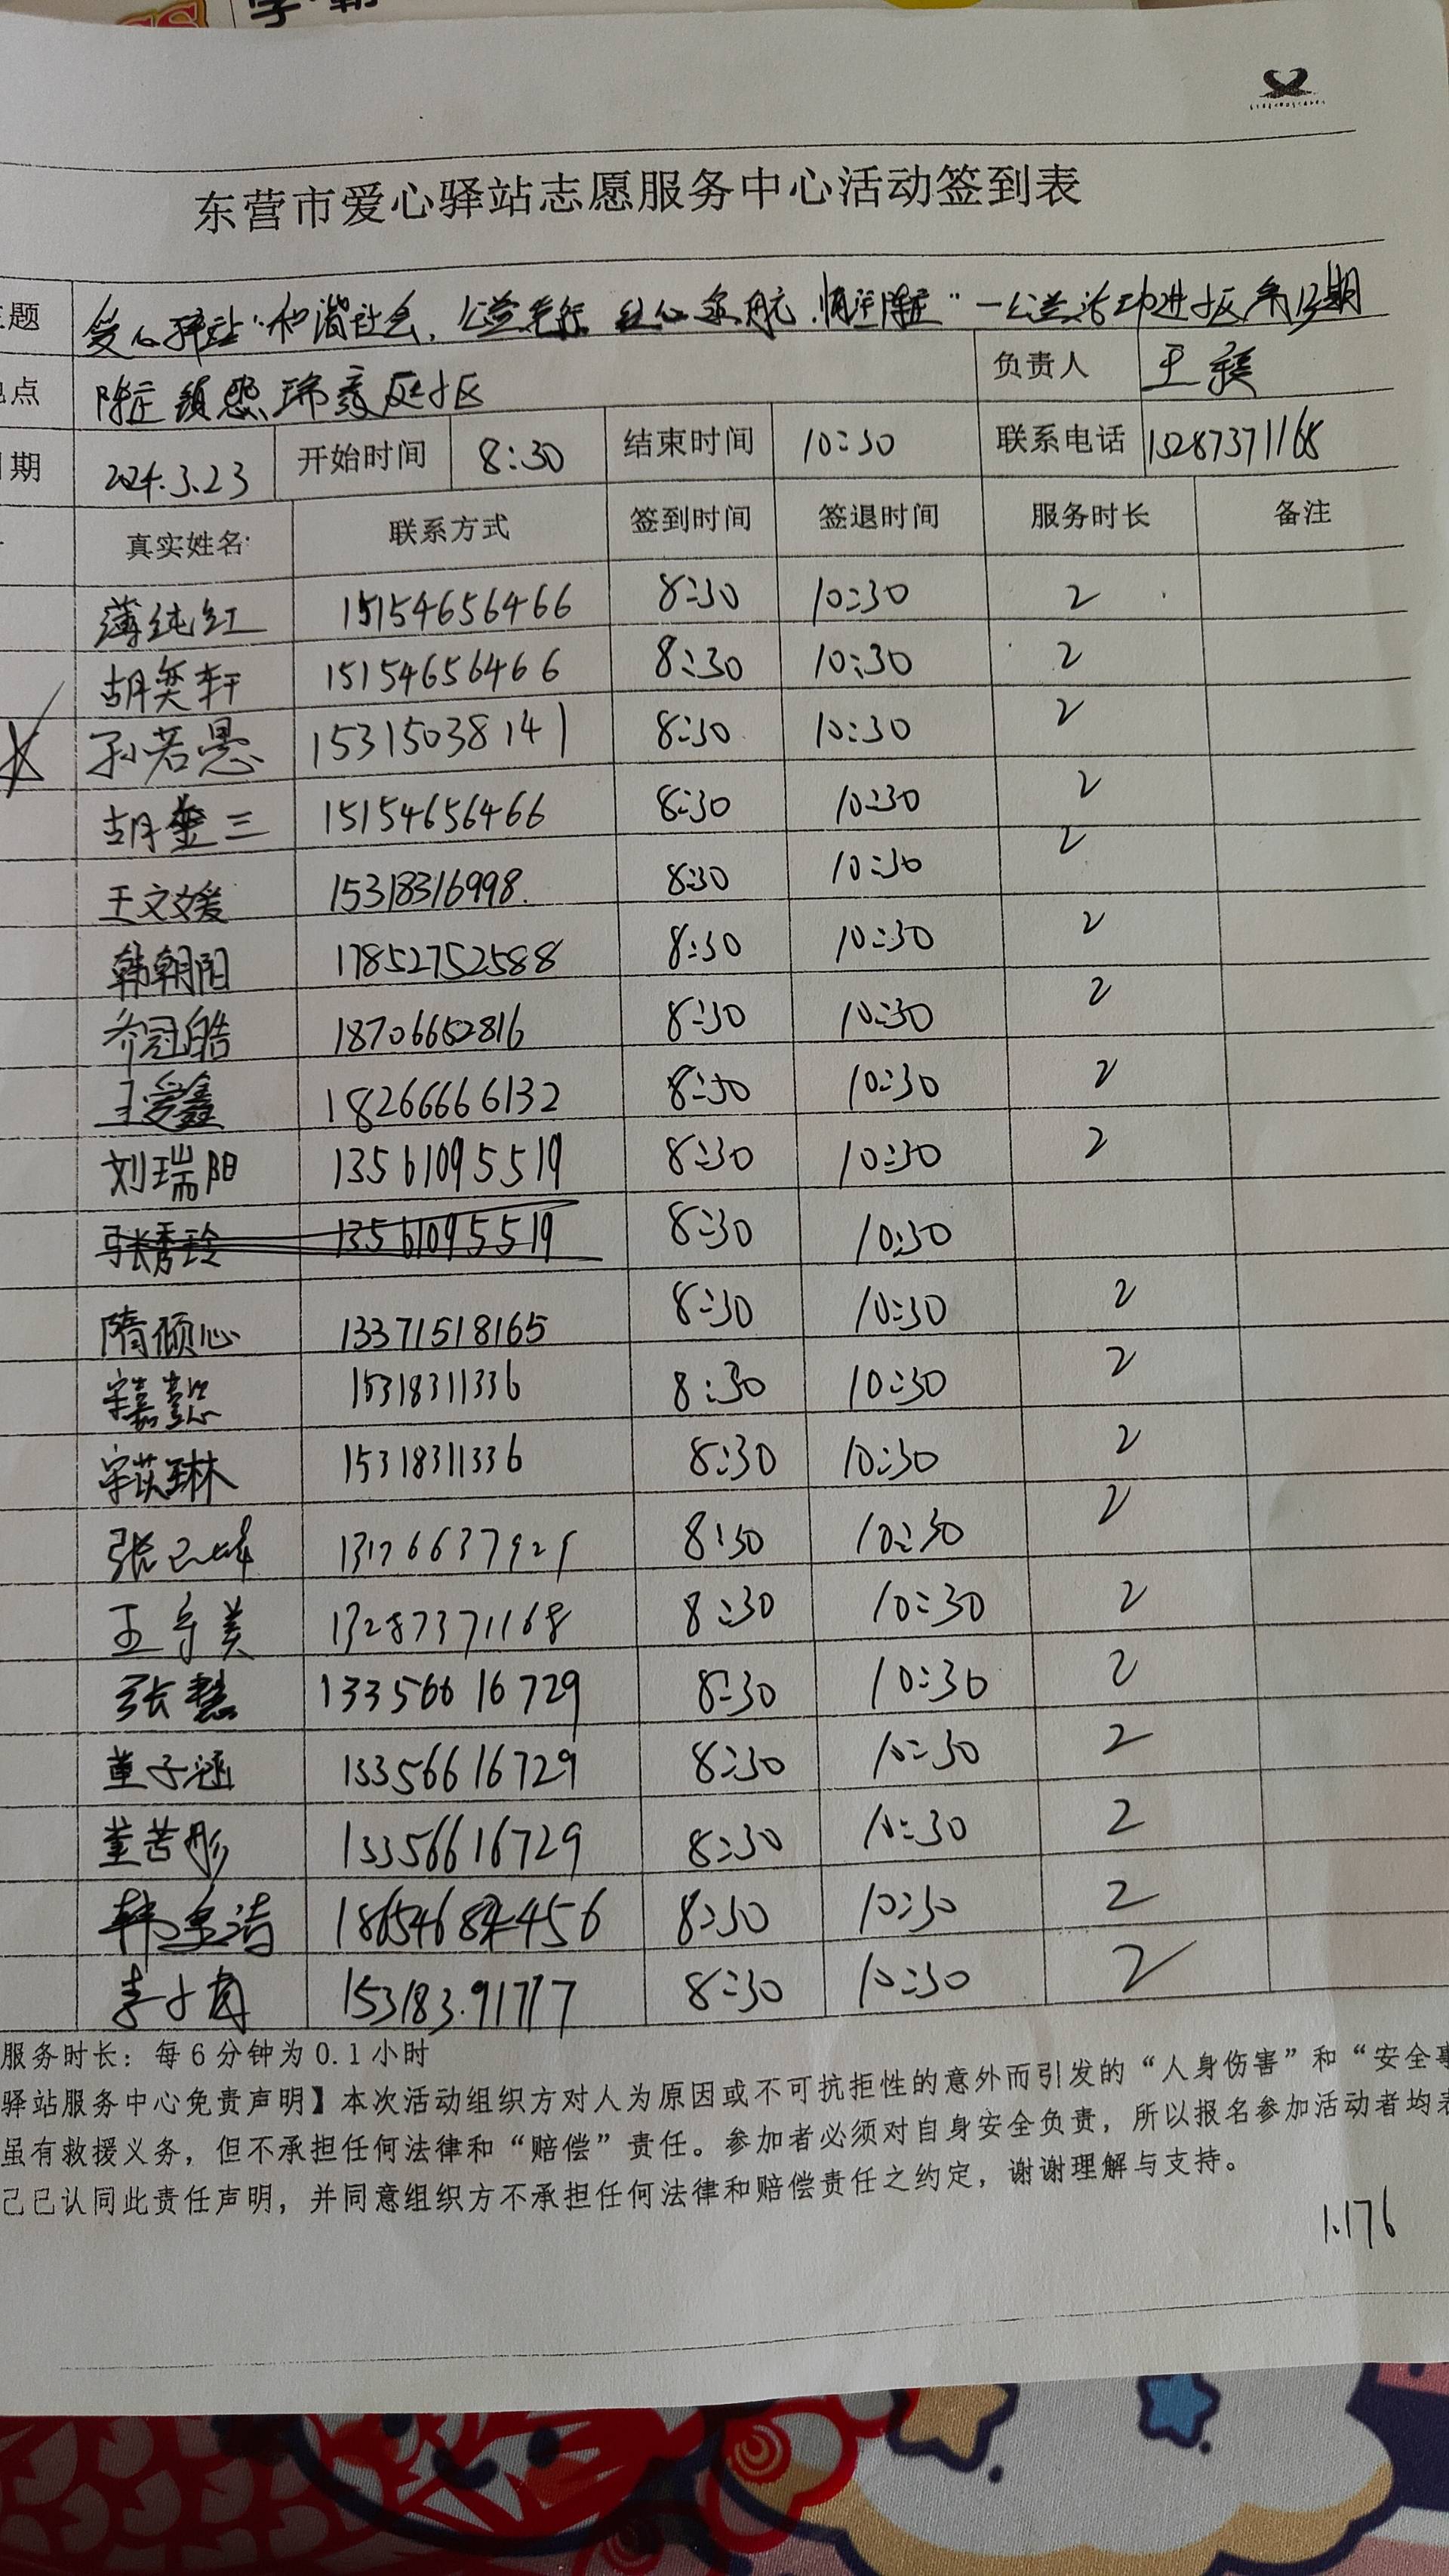 东营市爱心驿站志愿服务中心活动签到表
题 爱心驿站“和谐社会,公益先行 红心领航 情注陈庄”一公益活动进社区第13期
点 陈庄镇 瑞 庭社区 负责人 王
期 2024.3.23 开始时间 8:30 结束时间 10:30 联系电话 13287371168
真实姓名 联系方式 签到时间 签退时间 服务时长 备注
薄纯红 15154656466 8:30 10:30 2
胡奕轩 15154656466 8:30 10:30 2
孙若愚 15315038141 8:30 10:30 2
胡金三 15154656466 8:30 10:30 2
王文媛 15318316998. 8:30 10:30 2
韩朝阳 17852752588 8:30 10:30 2
乔冠皓 18706652816 8:30 10:30 2
王爱鑫 18266666132 8:30 10:30 2
刘瑞阳 13561095519 8:30 10:30 2
张秀玲 13561095519 8:30 10:30
隋倾心 13371518165 8:30 10:30 2
宋嘉懿 15318311336 8:30 10:30 2
宋苡琳 15318311336 8:30 10:30 2
张 8:30 10:30 2
王 美 13287371168 8:30 10:30 2
张慧 13356616729 8:30 10:30 2
董子涵 13356616729 8:30 10:30 2
董苦彤 13356616729 8:30 10:30 2
韩 洁 8:30 10:30 2
李 15318391717 8:30 10:30 2
服务时长:每6分钟为0.1小时
驿站服务中心免责声明】本次活动组织方对人为原因或不可抗拒性的意外而引发的“人身伤害”和“安全事
虽有救援义务,但不承担任何法律和“赔偿”责任。参加者必须对自身安全负责,所以报名参加活动者均表
己已认同此责任声明,并同意组织方不承担任何法律和赔偿责任之约定,谢谢理解与支持。
1.176